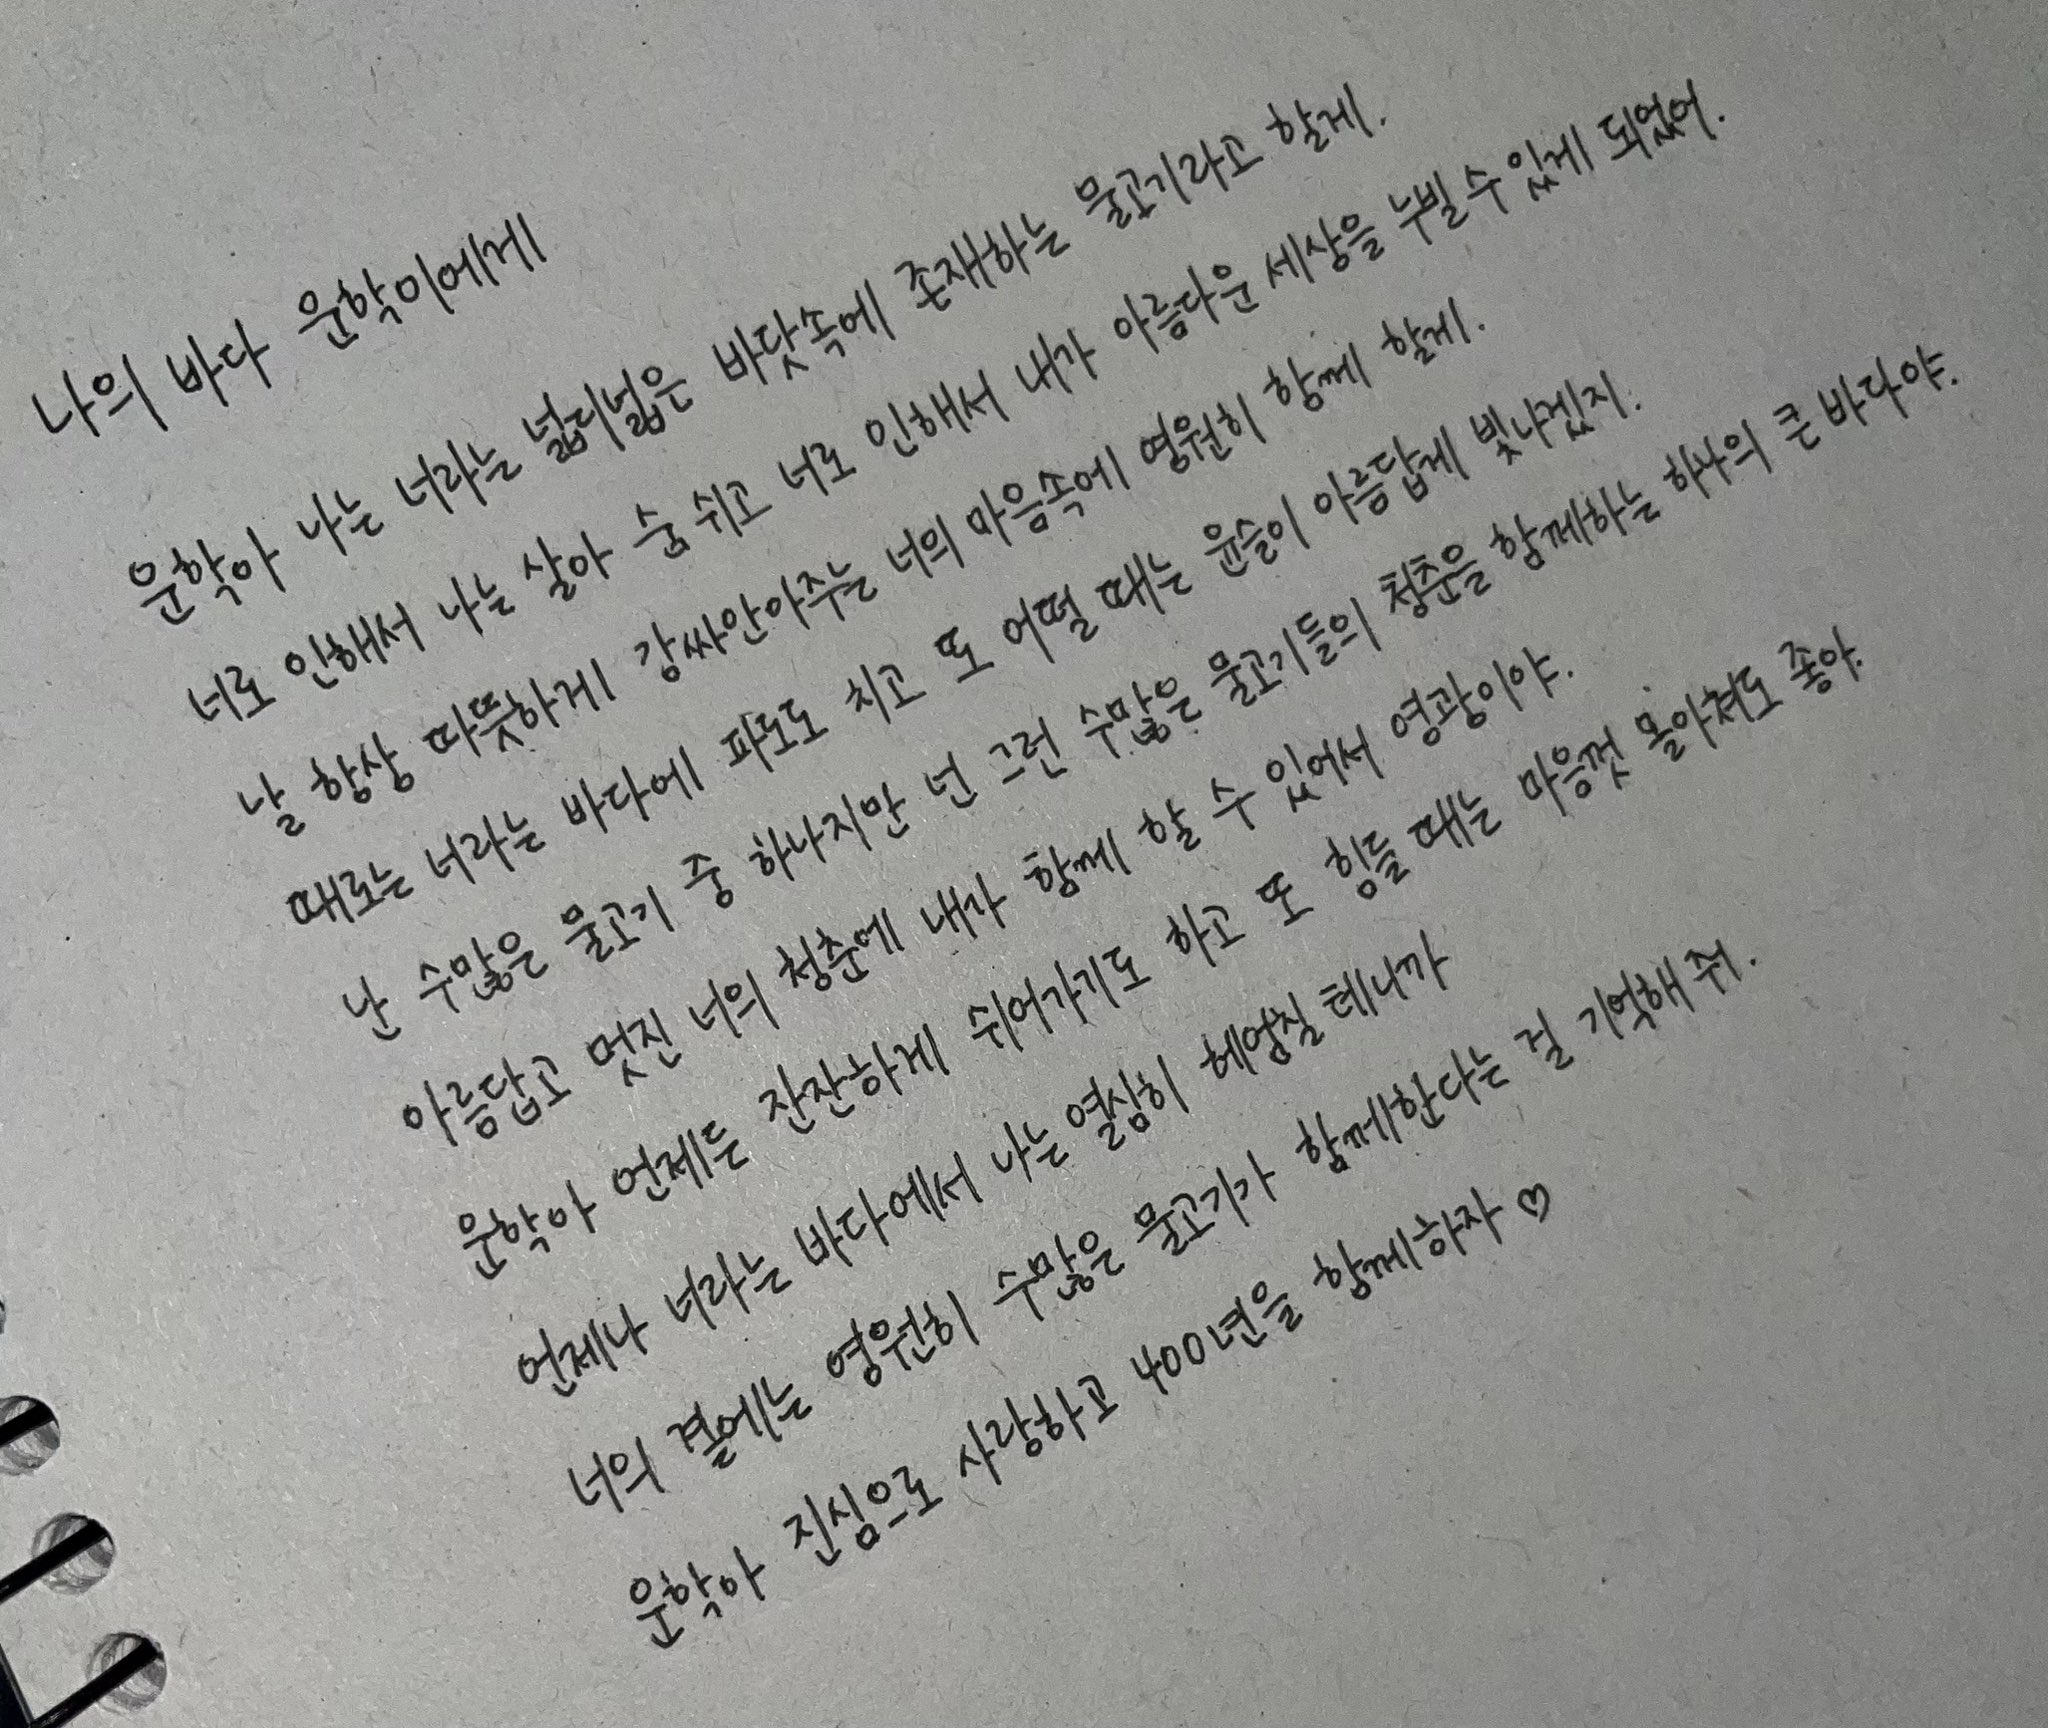 나의 바다 운학이에게
운학아 나는 너라는 넓디넓은 바닷속에 존재하는 물고기라고 할게.
너로 인해서 나는 살아 숨 쉬고 너로 인해서 내가 아름다운 세상을 누빌 수 있게 되었어.
날 항상 따뜻하게 감싸안아주는 너의 마음속에 영원히 함께 할게.
때로는 너라는 바다에 파도도 치고 또 어떨 때는 윤슬이 아름답게 빛나겠지.
난 수많은 물고기 중 하나지만 넌 그런 수많은 물고기들의 청춘을 함께하는 하나의 큰 바다야.
아름답고 멋진 너의 청춘에 내가 함께 할 수 있어서 영광이야.
운학아 언제든 잔잔하게 쉬어가기도 하고 또 힘들 때는 마음껏 몰아쳐도 좋아.
언제나 너라는 바다에서 나는 열심히 헤엄칠 테니까
너의 곁에는 영원히 수많은 물고기가 함께한다는 걸 기억해 줘.
운학아 진심으로 사랑하고 400년을 함께하자 ♡